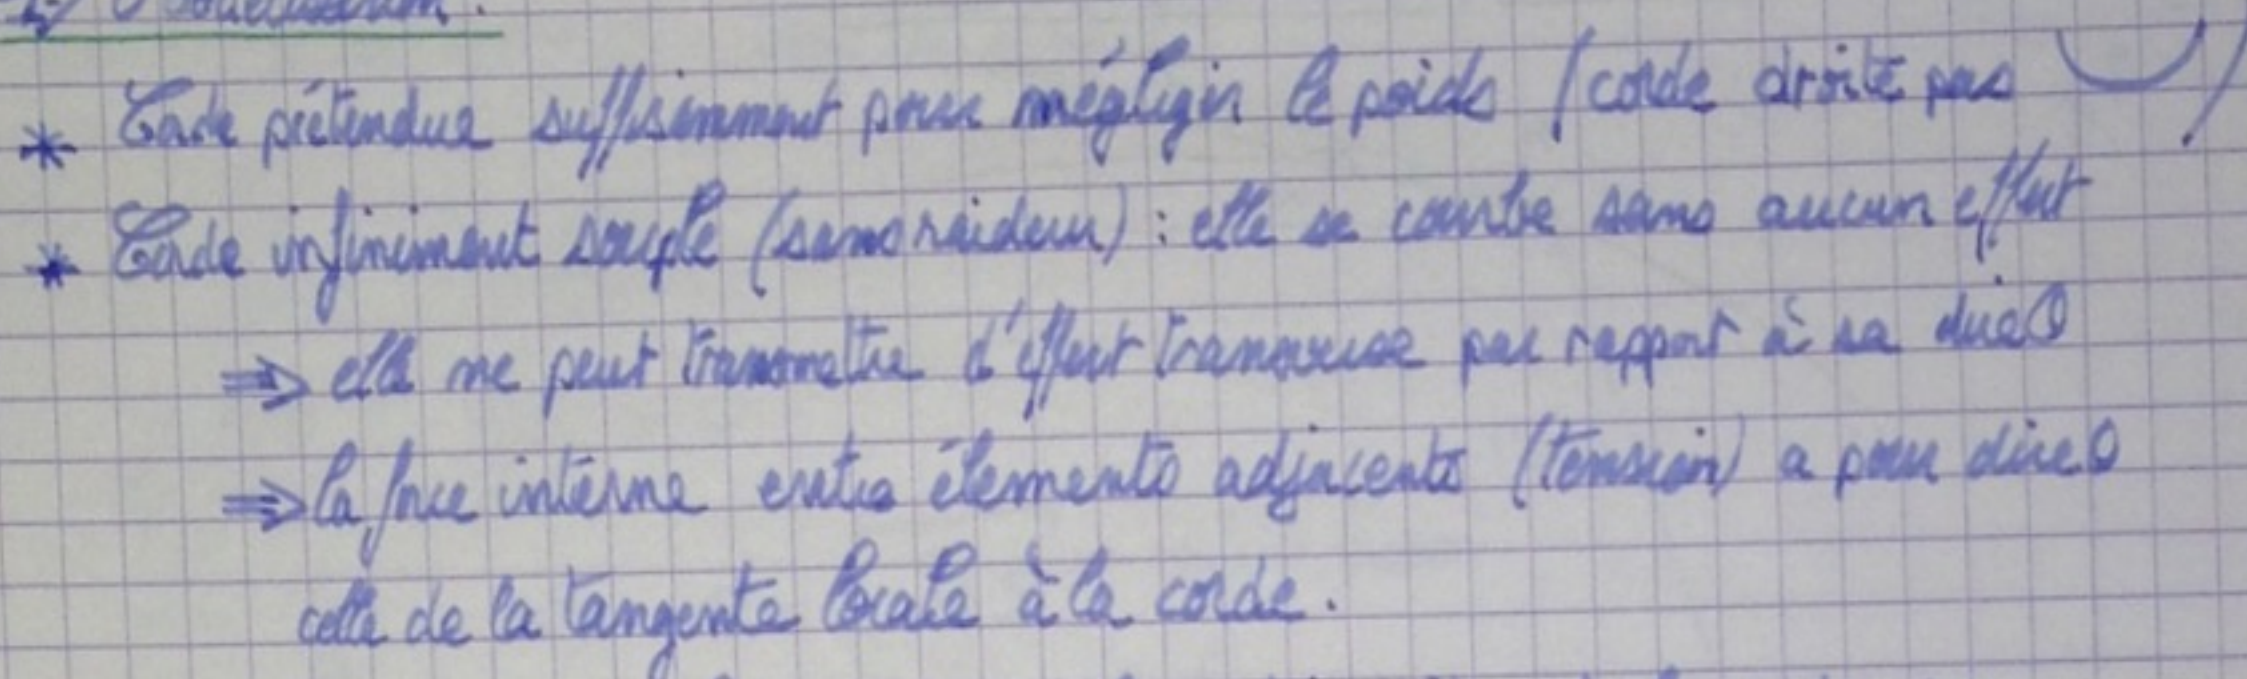 * Corde prétendue suffisamment pour négliger le poids (corde droite pas )
* Corde infiniment souple (sans raideur) : elle se courbe sans aucun effort
⇒ elle ne peut transmettre d'effort transverse par rapport à sa direct°
⇒ la force interne entre élements adjacents (tension) a pour direct°
celle de la tangente locale à la corde.